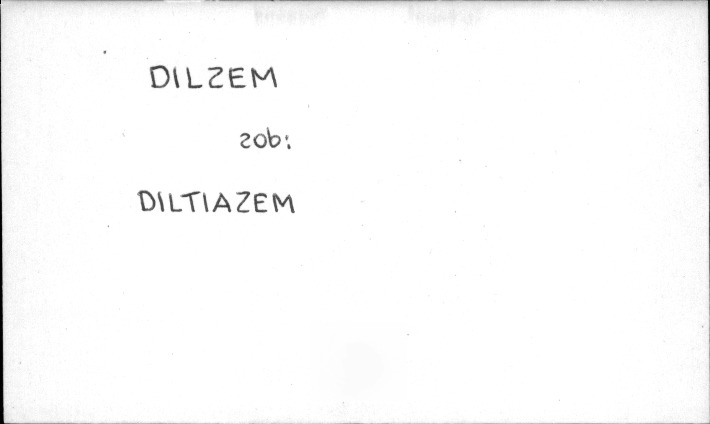 DILZEM
zob:
DILTIAZEM